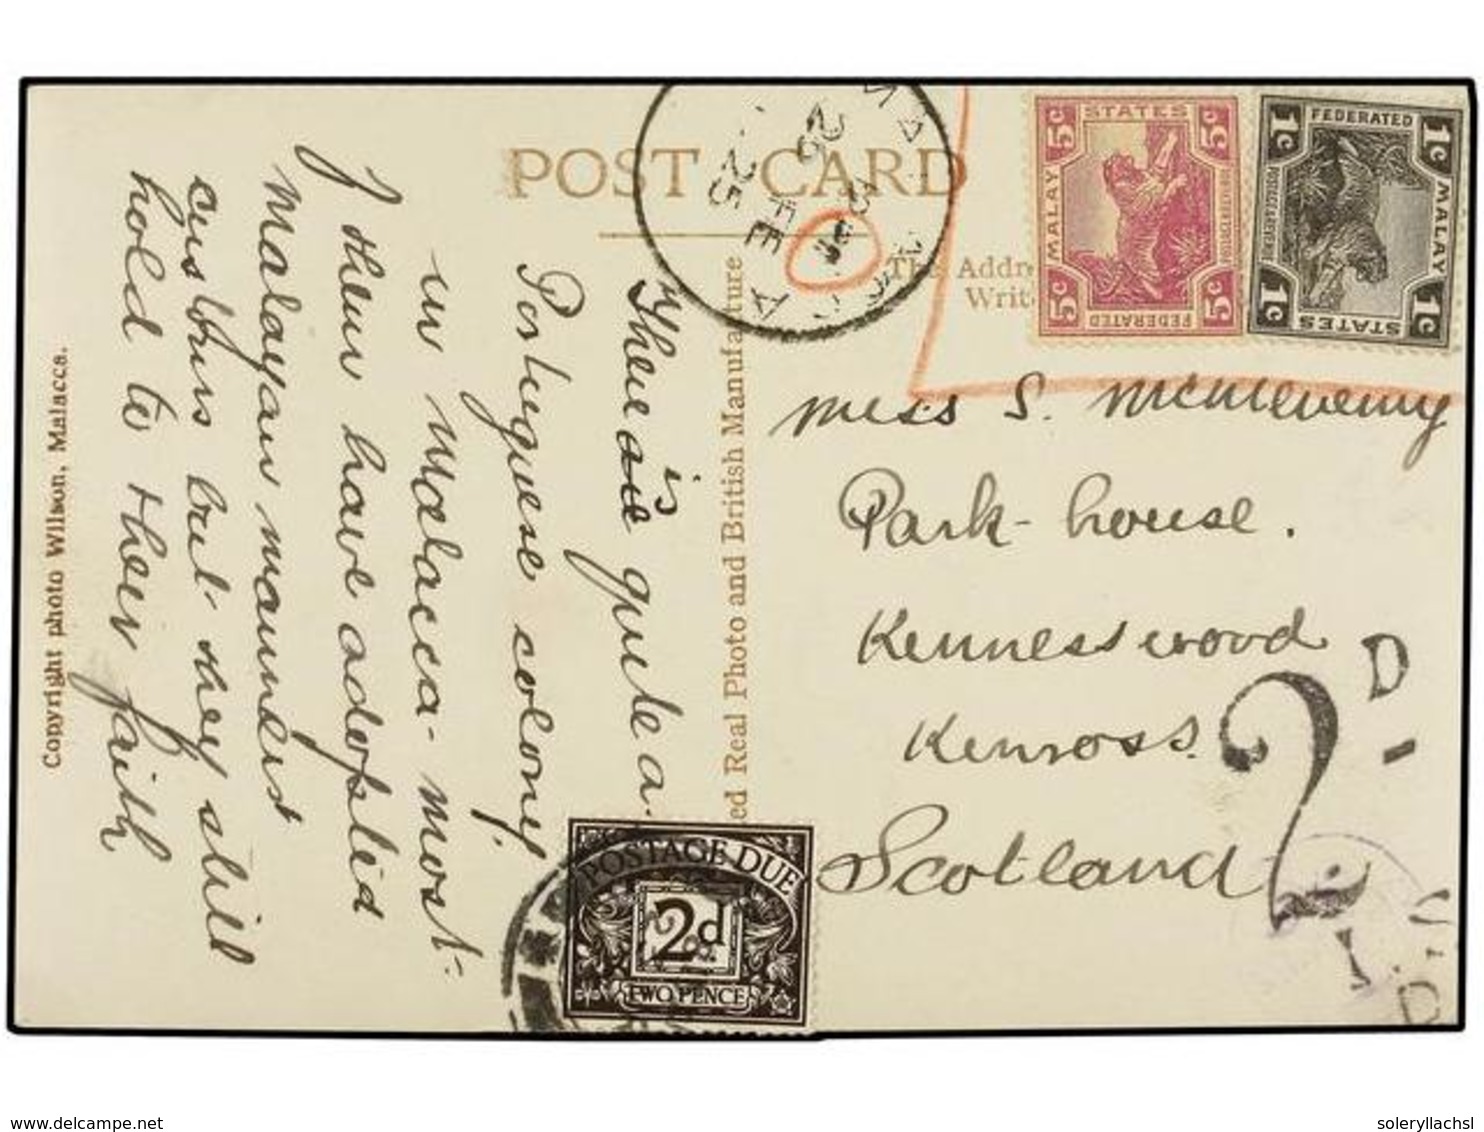 POST CARD
The Addr
Writ
MALAY
STATES
FEDERATED
5c
5c
5c
5c
FEDERATED
MALAY
STATES
POSTAGE & REVENUE
1c
1c
1c
1c
25
FE
Miss S. McIlevenny
Park-house.
Kennesswood
Kinross.
Scotland
There is quite a
Portuguese colony
in Malacca - most
of them have adopted
Malayan manners
customs but they still
hold to their faith
ed Real Photo and British Manufacture
Copyright photo Wilson, Malacca.
POSTAGE DUE
2d
TWO PENCE
2D
delcampe.net
soleryllachsl